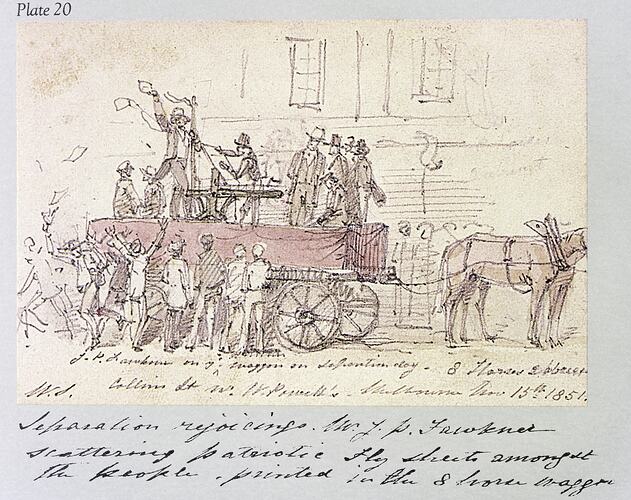 Plate 20
J. P. Fawkner on ye waggon on separation day - 8 Horses
Collins St nr W. Powell's - Melbourne Nov 15th 1851.
W.S.
Separation rejoicings. Mr. J. P. Fawkner
scattering pateriotic Fly sheets amongst
the people. printed in the 8 horse waggon